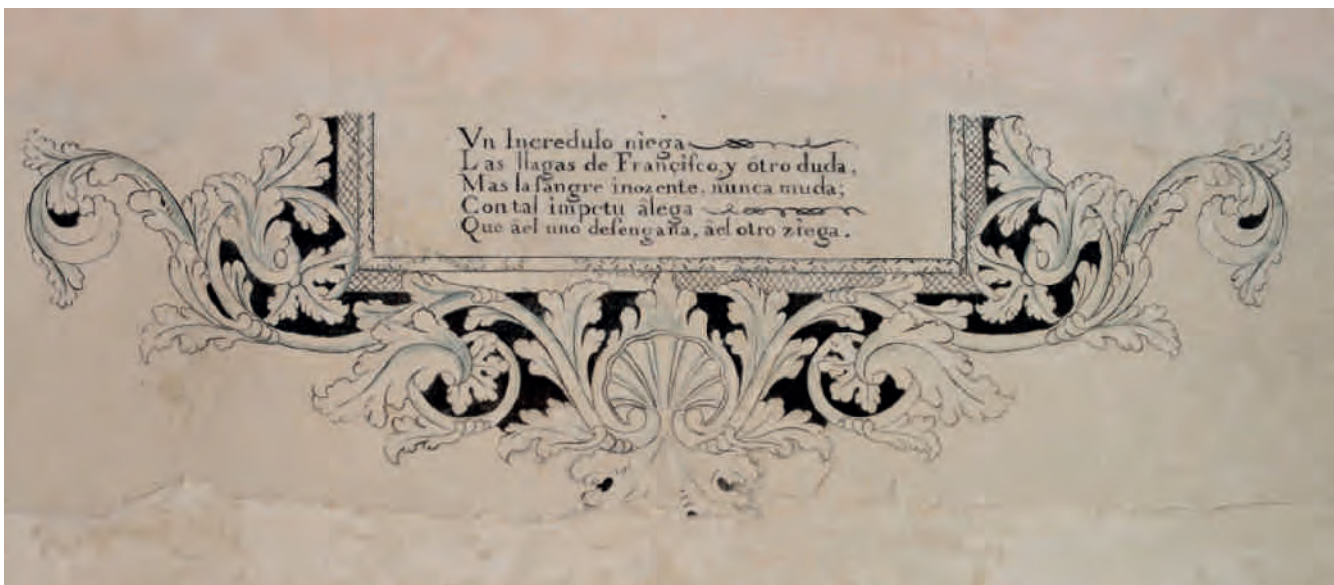 Vn Incredulo niega
Las llagas de Françiſco, y ótro duda,
Mas la ſangre inozente, nunca muda;
Con tal impetu âlega
Que âel uno deſengaña, âel otro ziega.